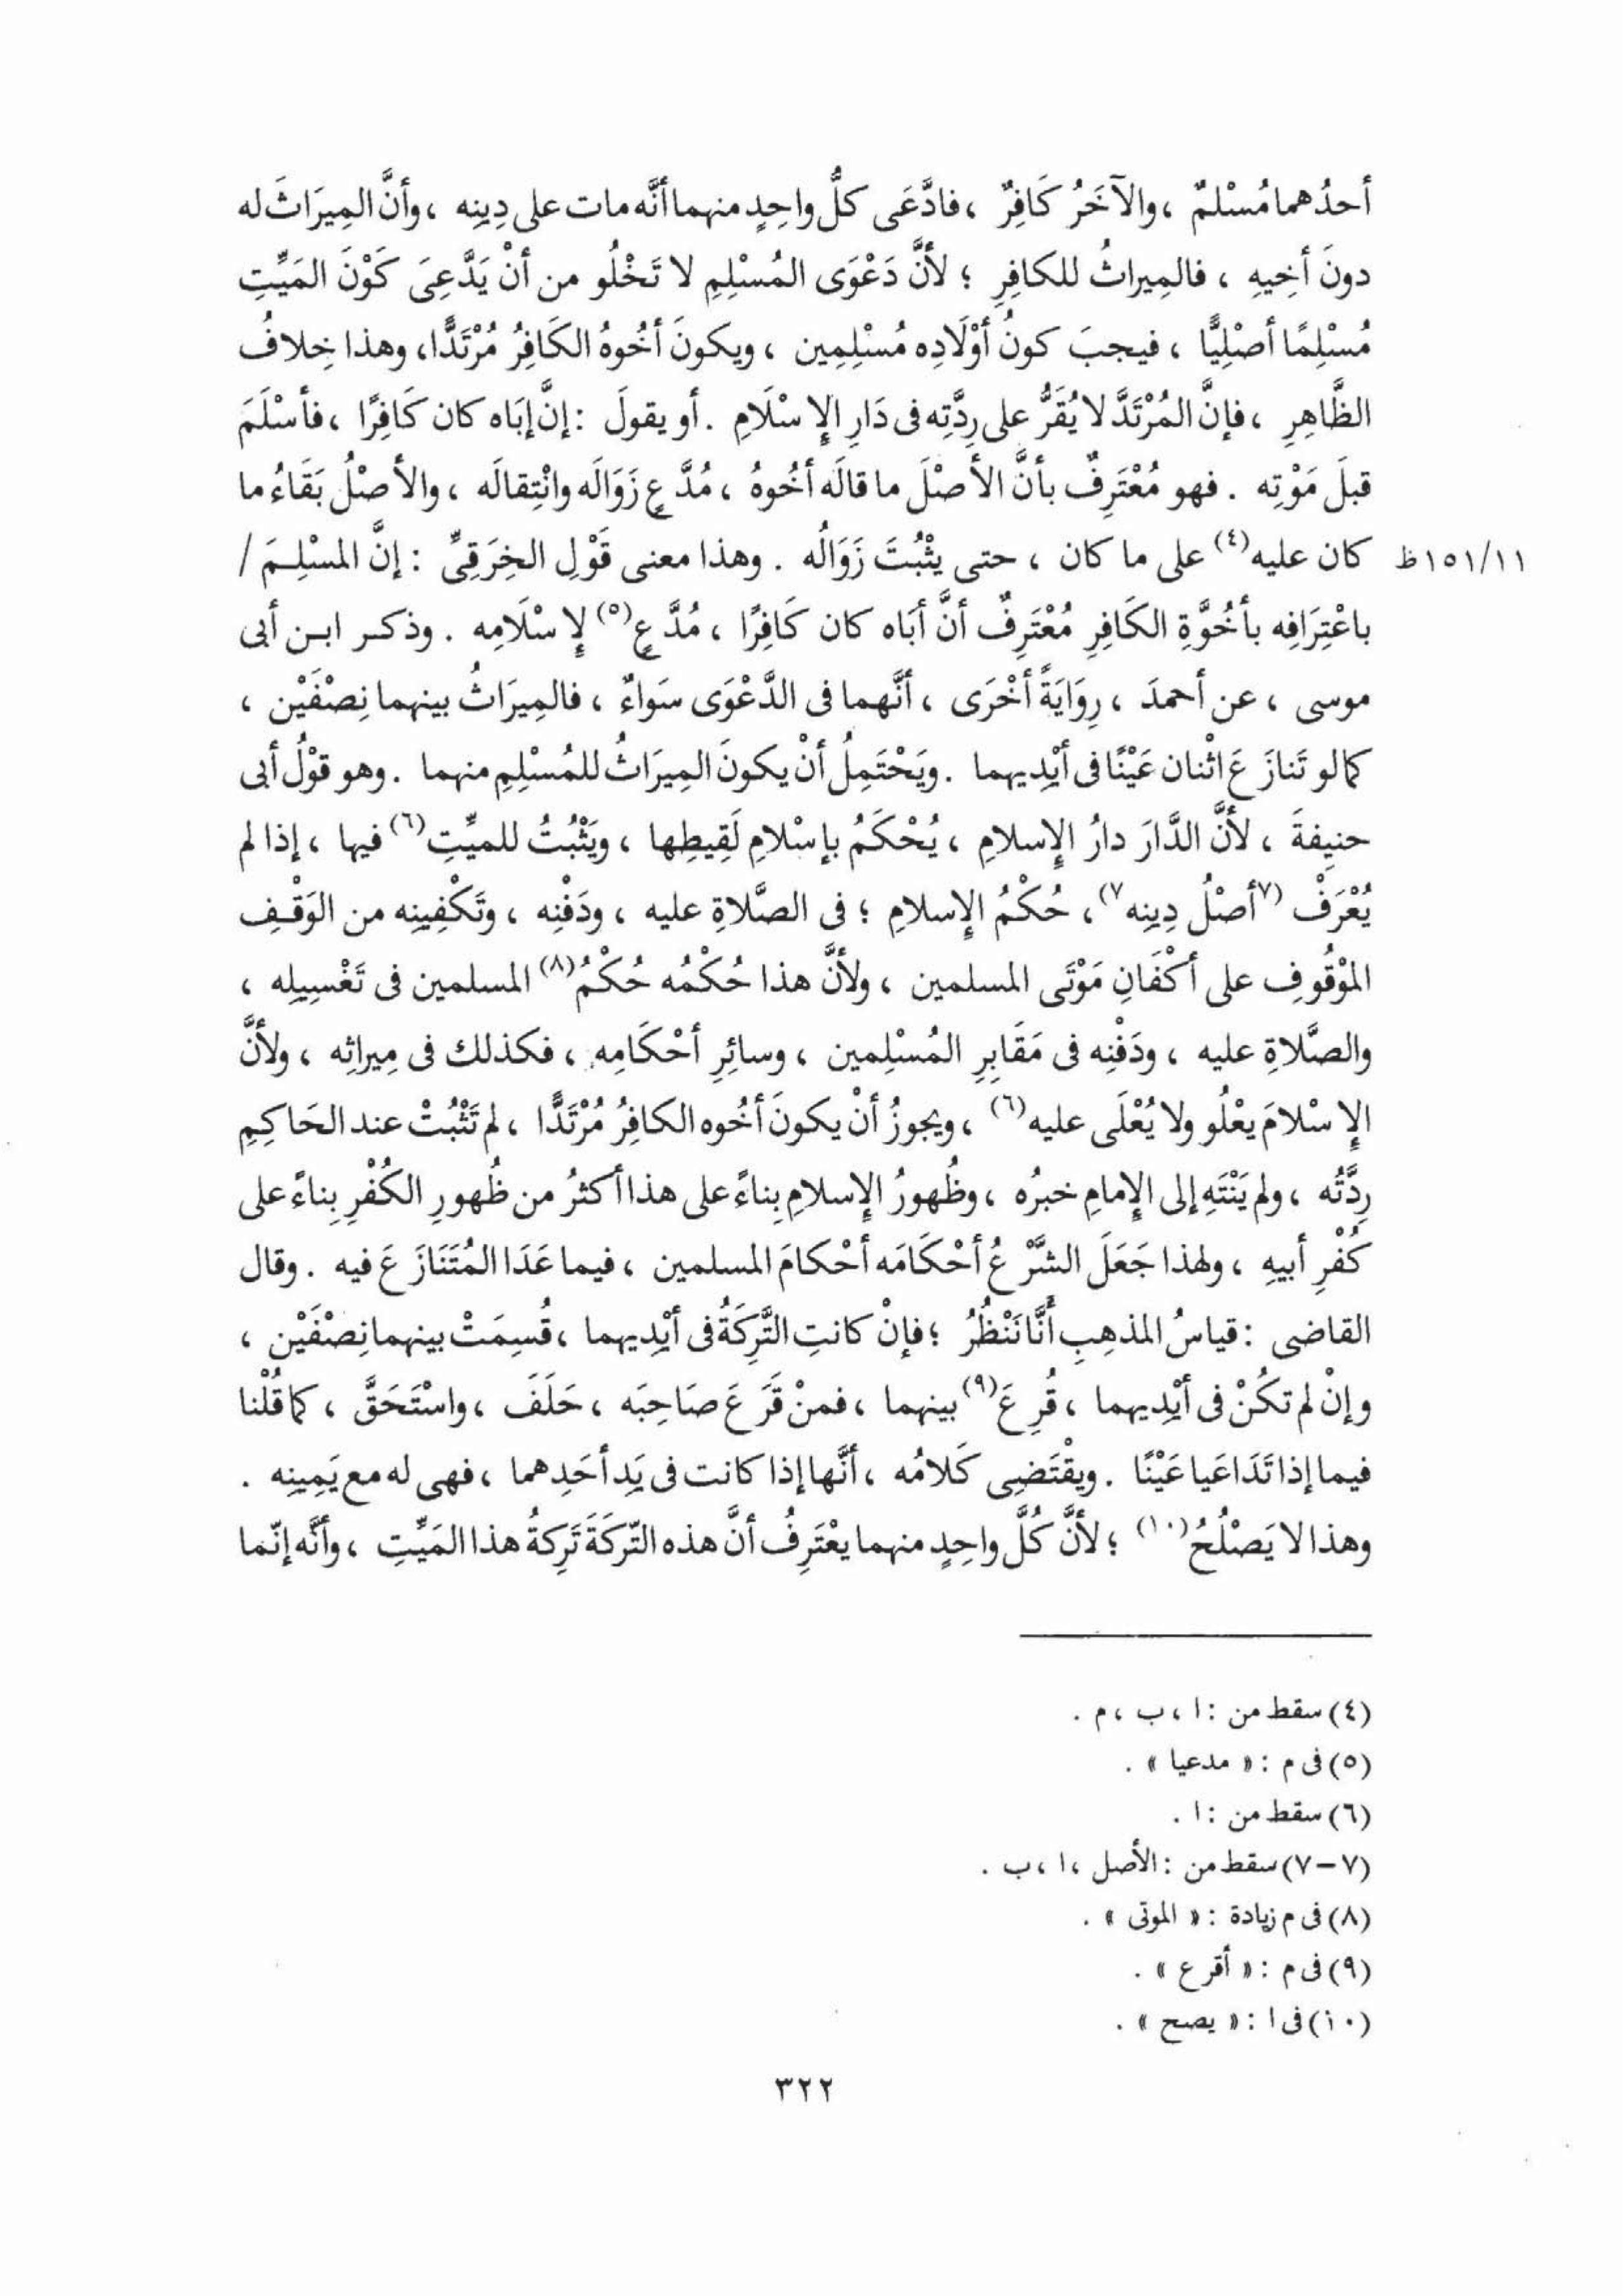 أحدُهما مُسْلمٌ ، والآخَرُ كَافِرٌ ، فادَّعَى كلُّ واحِدٍ منهما أنَّه مات على دِينِه ، وأنَّ المِيرَاثَ له
دونَ أخِيهِ ، فالمِيراثُ للكافِرِ ؛ لأنَّ دَعْوَى المُسْلِمِ لا تَخْلُو من أنْ يَدَّعِىَ كَوْنَ المَيِّتِ
مُسْلِمًا أصْلِيًّا ، فيجبَ كونُ أوْلَادِه مُسْلِمِين ، ويكونَ أخُوهُ الكَافِرُ مُرْتَدًّا ، وهذا خِلافُ
الظَّاهِرِ ، فإنَّ المُرْتَدَّ لا يُقَرُّ على رِدَّتِه فى دَارِ الإِسْلَامِ . أو يقولَ : إنَّ إبَاه كان كَافِرًا ، فأسْلَمَ
قبلَ مَوْتِه . فهو مُعْتَرِفٌ بأنَّ الأصْلَ ما قالَه أخُوهُ ، مُدَّعٍ زَوَالَه وانْتِقالَه ، والأصْلُ بَقَاءُ ما
١٥١/١١ظ كان عليه(٤) على ما كان ، حتى يثْبُتَ زَوَالُه . وهذا معنى قَوْلِ الخِرَقِىِّ : إنَّ المسْلِمَ /
باعْتِرَافِه بأخُوَّةِ الكَافِرِ مُعْتَرِفٌ أنَّ أبَاه كان كَافِرًا ، مُدَّعٍ(٥) لإِسْلَامِه . وذكر ابن أبى
موسى ، عن أحمدَ ، رِوَايَةً أخْرَى ، أنَّهما فى الدَّعْوَى سَواءٌ ، فالمِيرَاثُ بينهما نِصْفَيْن ،
كما لو تَنازَعَ اثْنان عَيْنًا فى أيْدِيهما . ويَحْتَمِلُ أنْ يكونَ المِيرَاثُ للمُسْلِمِ منهما . وهو قوْلُ أبى
حنيفةَ ، لأنَّ الدَّارَ دارُ الإِسلامِ ، يُحْكَمُ بإسْلامِ لَقِيطِها ، ويَثْبُتُ للميِّتِ(٦) فيها ، إذا لم
يُعْرَفْ (٧أصْلُ دِينِه٧) ، حُكْمُ الإِسلامِ ؛ فى الصَّلاةِ عليه ، ودَفْنِه ، وتَكْفِينِه من الوَقْفِ
المَوْقُوفِ على أكْفَانِ مَوْتَى المسلمين ، ولأنَّ هذا حُكْمُه حُكْمُ(٨) المسلمين فى تَغْسِيلِه ،
والصَّلاةِ عليه ، ودَفْنِه فى مَقَابِرِ المُسْلِمين ، وسائِرِ أحْكَامِه ، فكذلك فى مِيراثِه ، ولأنَّ
الإِسْلامَ يعْلُو ولا يُعْلَى عليه(٦) ، ويجوزُ أنْ يكونَ أخُوه الكافِرُ مُرْتَدًّا ، لم تَثْبُتْ عند الحَاكِمِ
رِدَّتُه ، ولم يَنْتَهِ إلى الإِمامِ خبرُه ، وظُهورُ الإِسلامِ بِناءً على هذا أكثرُ من ظُهورِ الكُفْرِ بِناءً على
كُفْرِ أبيهِ ، ولهذا جَعَلَ الشَّرْعُ أحْكَامَه أحْكامَ المسلمين ، فيما عَدَا المُتَنَازَعَ فيه . وقال
القاضى : قياسُ المذهبِ أنَّا نَنْظُرُ ؛ فإنْ كانتِ التَّرِكَةُ فى أيْدِيهما ، قُسِمَتْ بينهما نِصْفَيْن ،
وإنْ لم تكُنْ فى أيْدِيهما ، قُرِعَ(٩) بينهما ، فمنْ قَرَعَ صَاحِبَه ، حَلَفَ ، واسْتَحَقَّ ، كما قُلْنا
فيما إذا تَدَاعَيا عَيْنًا . ويقْتَضِى كَلامُه ، أنَّها إذا كانت فى يَدِ أحَدِهما ، فهى له مع يَمِينِه .
وهذا لا يَصْلُحُ(١٠) ؛ لأنَّ كُلَّ واحِدٍ منهما يعْتَرِفُ أنَّ هذه التّرِكَةَ تَرِكةُ هذا المَيِّتِ ، وأنَّه إنّما
(٤) سقط من : ا ، ب ، م .
(٥) فى م : « مدعيا » .
(٦) سقط من : ا .
(٧-٧) سقط من : الأصل ، ا ، ب .
(٨) فى م زيادة : « الموتى » .
(٩) فى م : « أقرع » .
(١٠) فى ا : « يصح » .
٣٢٢